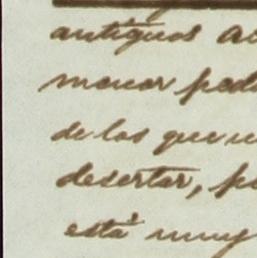 antiguos
menor
de los que
desertar,
está muy